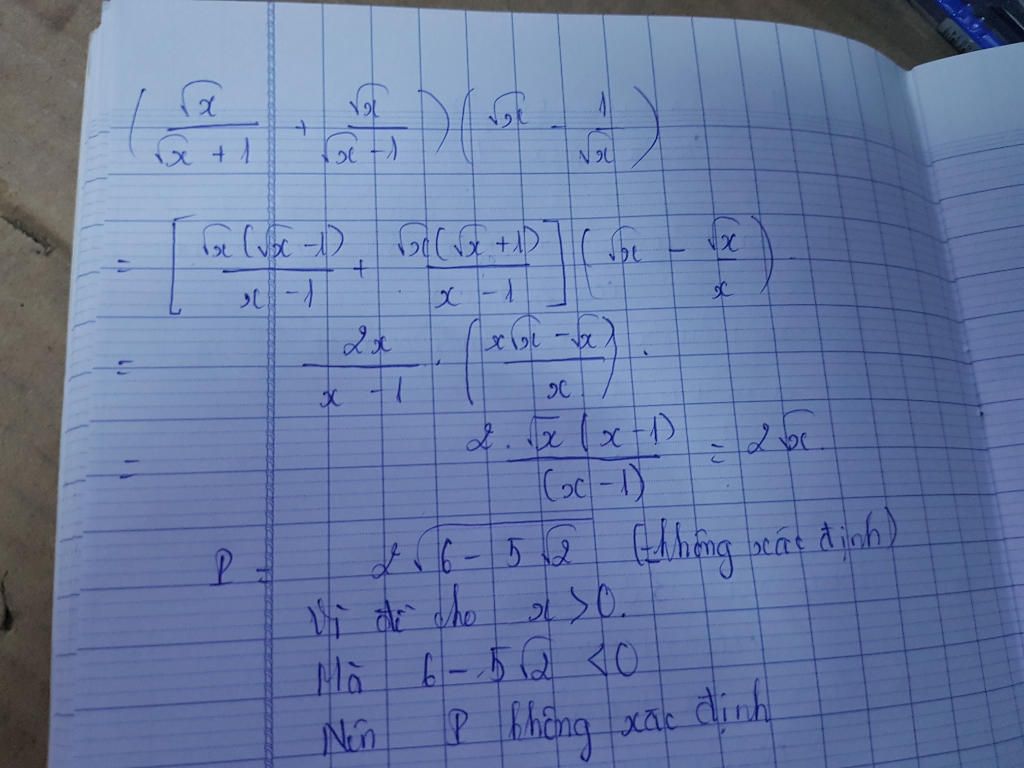 ( √x / (√x + 1) + √x / (√x - 1) ) ( √x - 1 / √x )
= [ √x (√x - 1) / (x - 1) + √x (√x + 1) / (x - 1) ] ( √x - √x / x )
= 2x / (x - 1) . ( (x√x - √x) / x ) .
= 2 . √x (x - 1) / (x - 1) = 2√x.
P = 2√(6 - 5√2) (không xác định)
Vì đề cho x > 0.
Mà 6 - 5√2 < 0
Nên P không xác định